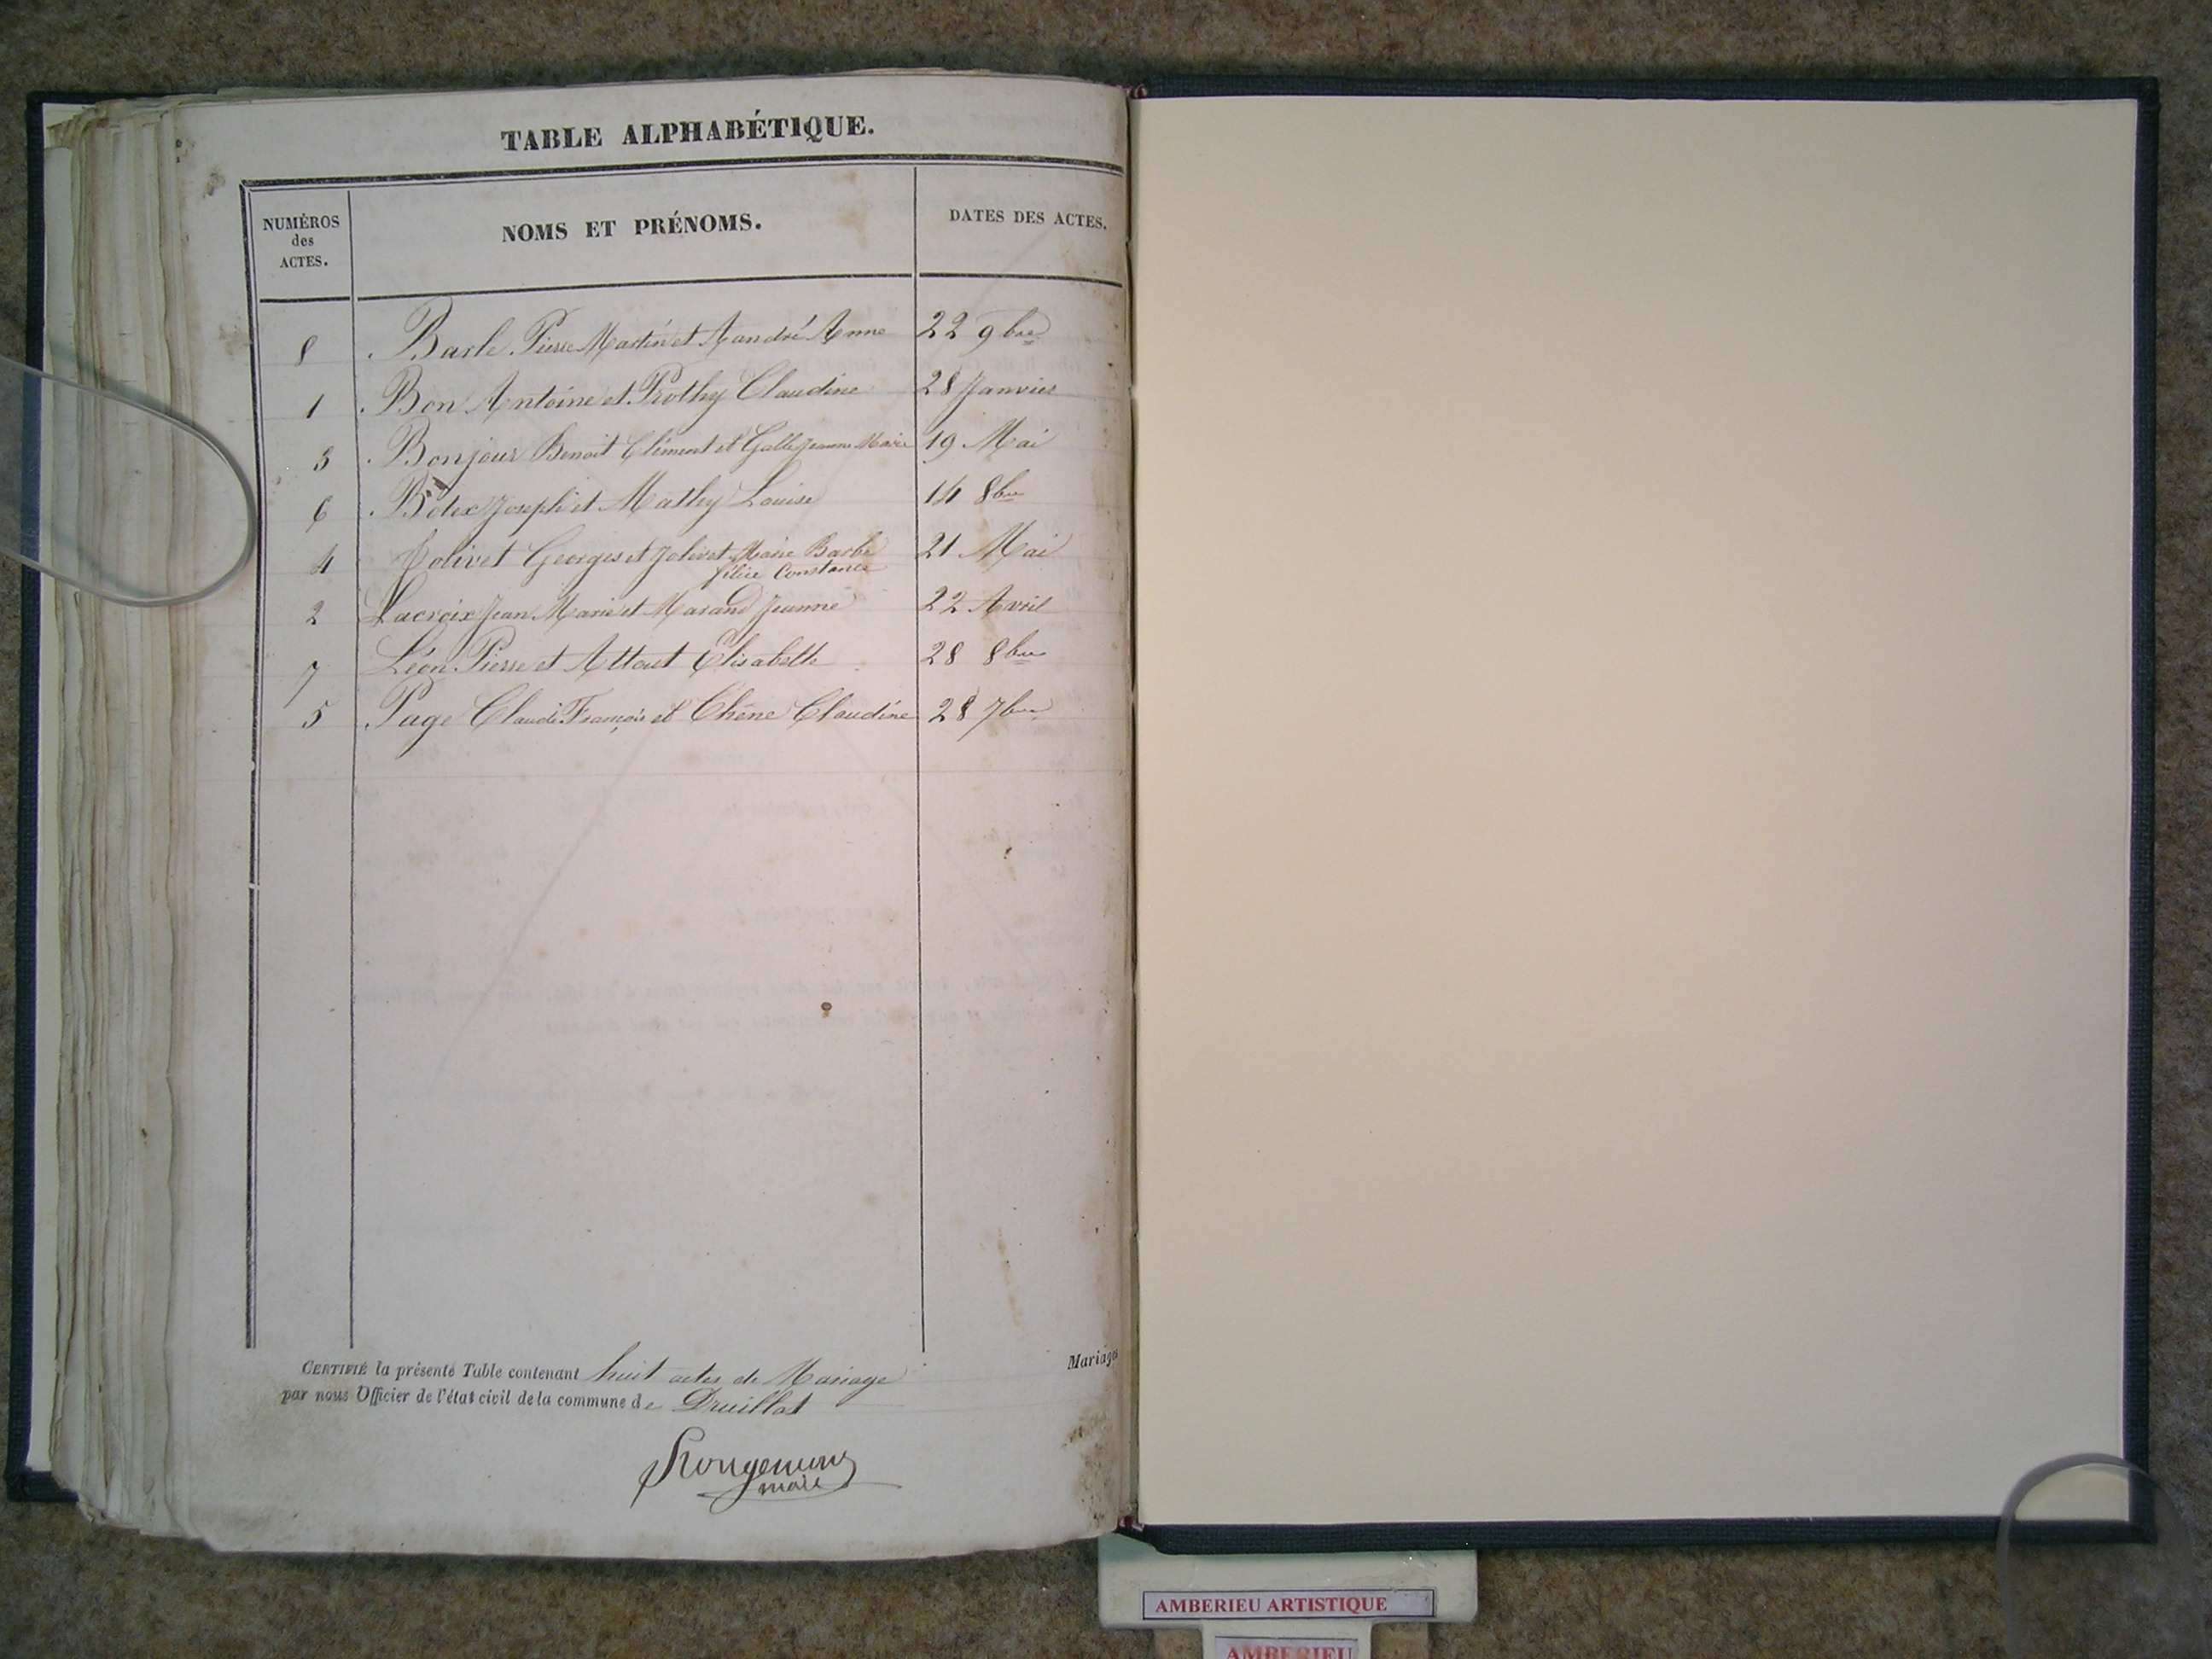 TABLE ALPHABÉTIQUE.
NUMÉROS des ACTES. NOMS ET PRÉNOMS. DATES DES ACTES.
8 Barle Pierre Martin et Aandré Anne 22 9bre
1 Bon Antoine et Prothy Claudine 28 Janvier
3 Bonjour Benoit Clément et Galle Jeanne Marie 19 Mai
6 Botex Joseph et Mathy Louise 14 8bre
4 Jolivet Georges et Jolivet Marie Barbe 21 Mai
Constance
2 Lacroix Jean Marie et Marand Jeanne 22 Avril
7 Léon Pierre et Attout Elisabette 28 8bre
5 Page Claude François et Chêne Claudine 28 7bre
CERTIFIÉ la présente Table contenant huit actes de Mariage
par nous Officier de l'état civil de la commune de Druillat
Mariages
Rougemont
maire
AMBERIEU ARTISTIQUE
AMBERIEU